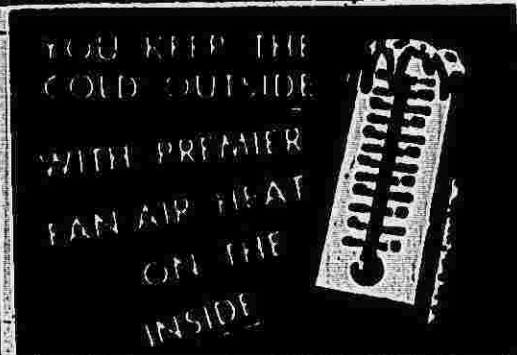 YOU KEEP THE
COLD OUTSIDE
WITH PREMIER
FAN AIR HEAT
ON THE
INSIDE